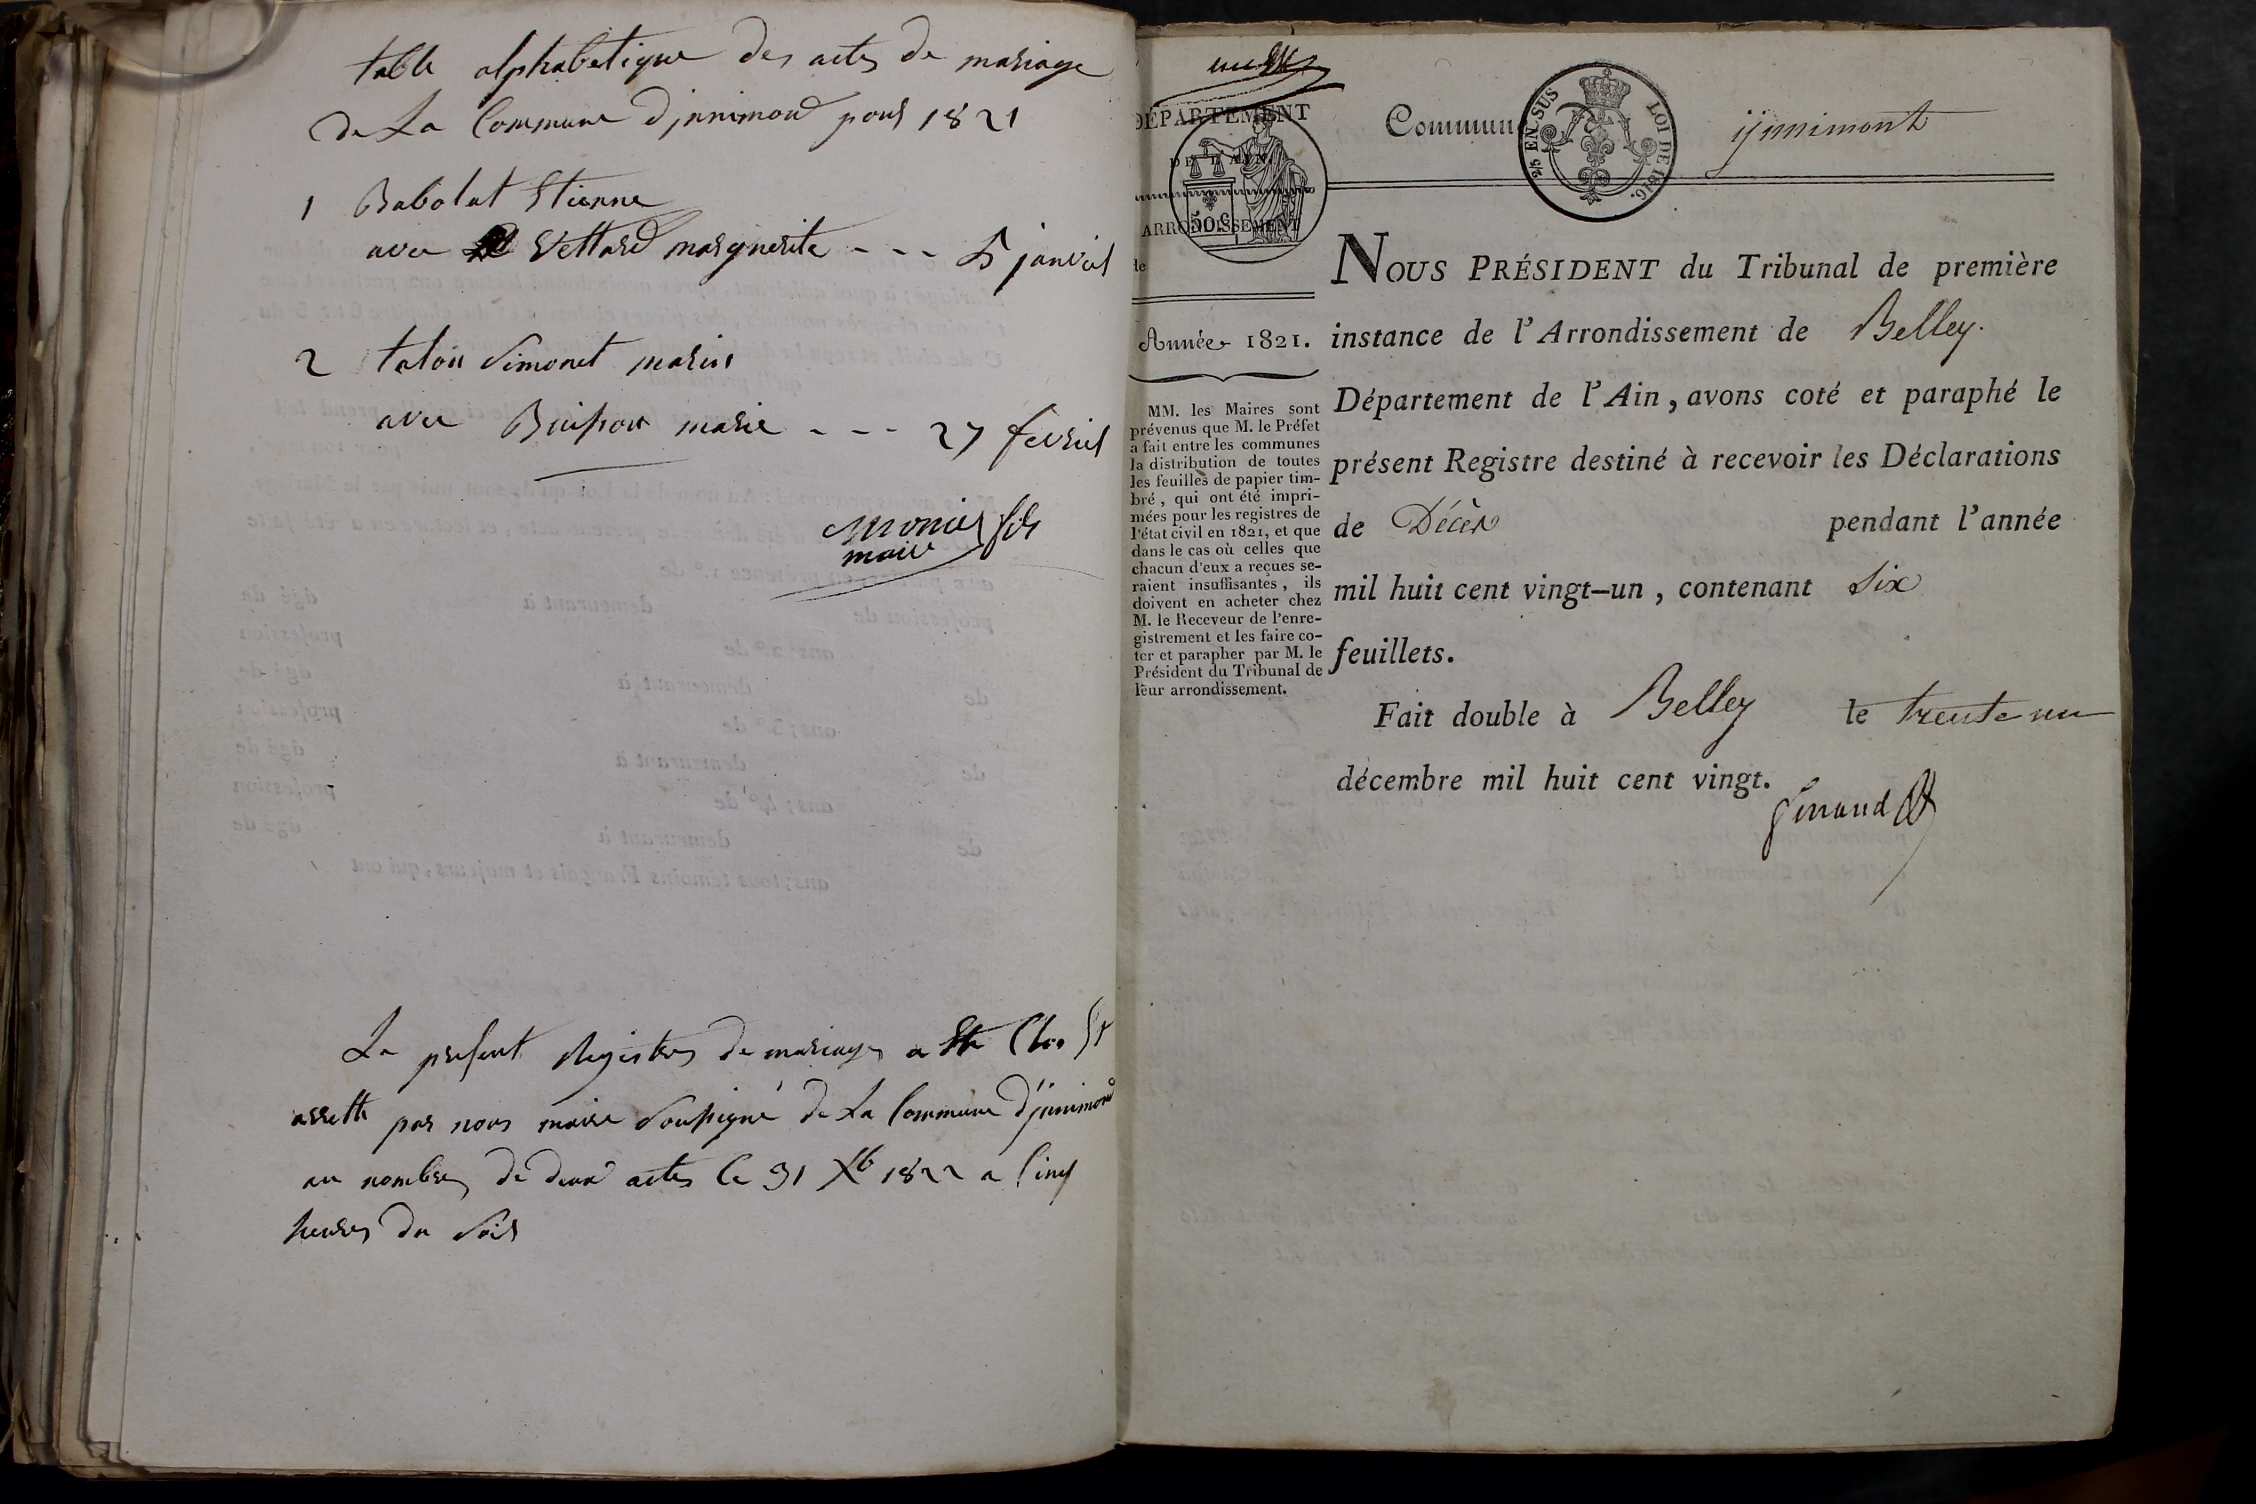 table alphabetique des actes de mariage
de La Commune d'jnnimond pour 1821
1 Babolat Etienne
avec Vettard marguerite - - - 5 janvier
2 talon Simonet marin
avec Buisson marie - - - 27 fevrier
monier fils
maire
Le present Registres de mariages a ete Clos et
arretté par nous maire Soussigné de La Commune d'ijnnimond
au nombres de deux actes Ce 31 Xb 1822 a Cinq
heures du Soir
un
DÉPARTEMENT
DE L'AIN.
ARRONDISSEMENT
de
50 c
Année 1821.
MM. les Maires sont
prévenus que M. le Préfet
a fait entre les communes
la distribution de toutes
les feuilles de papier tim-
bré, qui ont été impri-
mées pour les registres de
l'état civil en 1821, et que
dans le cas où celles que
chacun d'eux a reçues se-
raient insuffisantes, ils
doivent en acheter chez
M. le Receveur de l'enre-
gistrement et les faire co-
ter et parapher par M. le
Président du Tribunal de
leur arrondissement.
Commune ijnnimont
2/5 EN SUS LOI DE 1816.
NOUS PRÉSIDENT du Tribunal de première
instance de l'Arrondissement de Belley.
Département de l'Ain, avons coté et paraphé le
présent Registre destiné à recevoir les Déclarations
de Décès pendant l'année
mil huit cent vingt-un, contenant Six
feuillets.
Fait double à Belley le trente un
décembre mil huit cent vingt.